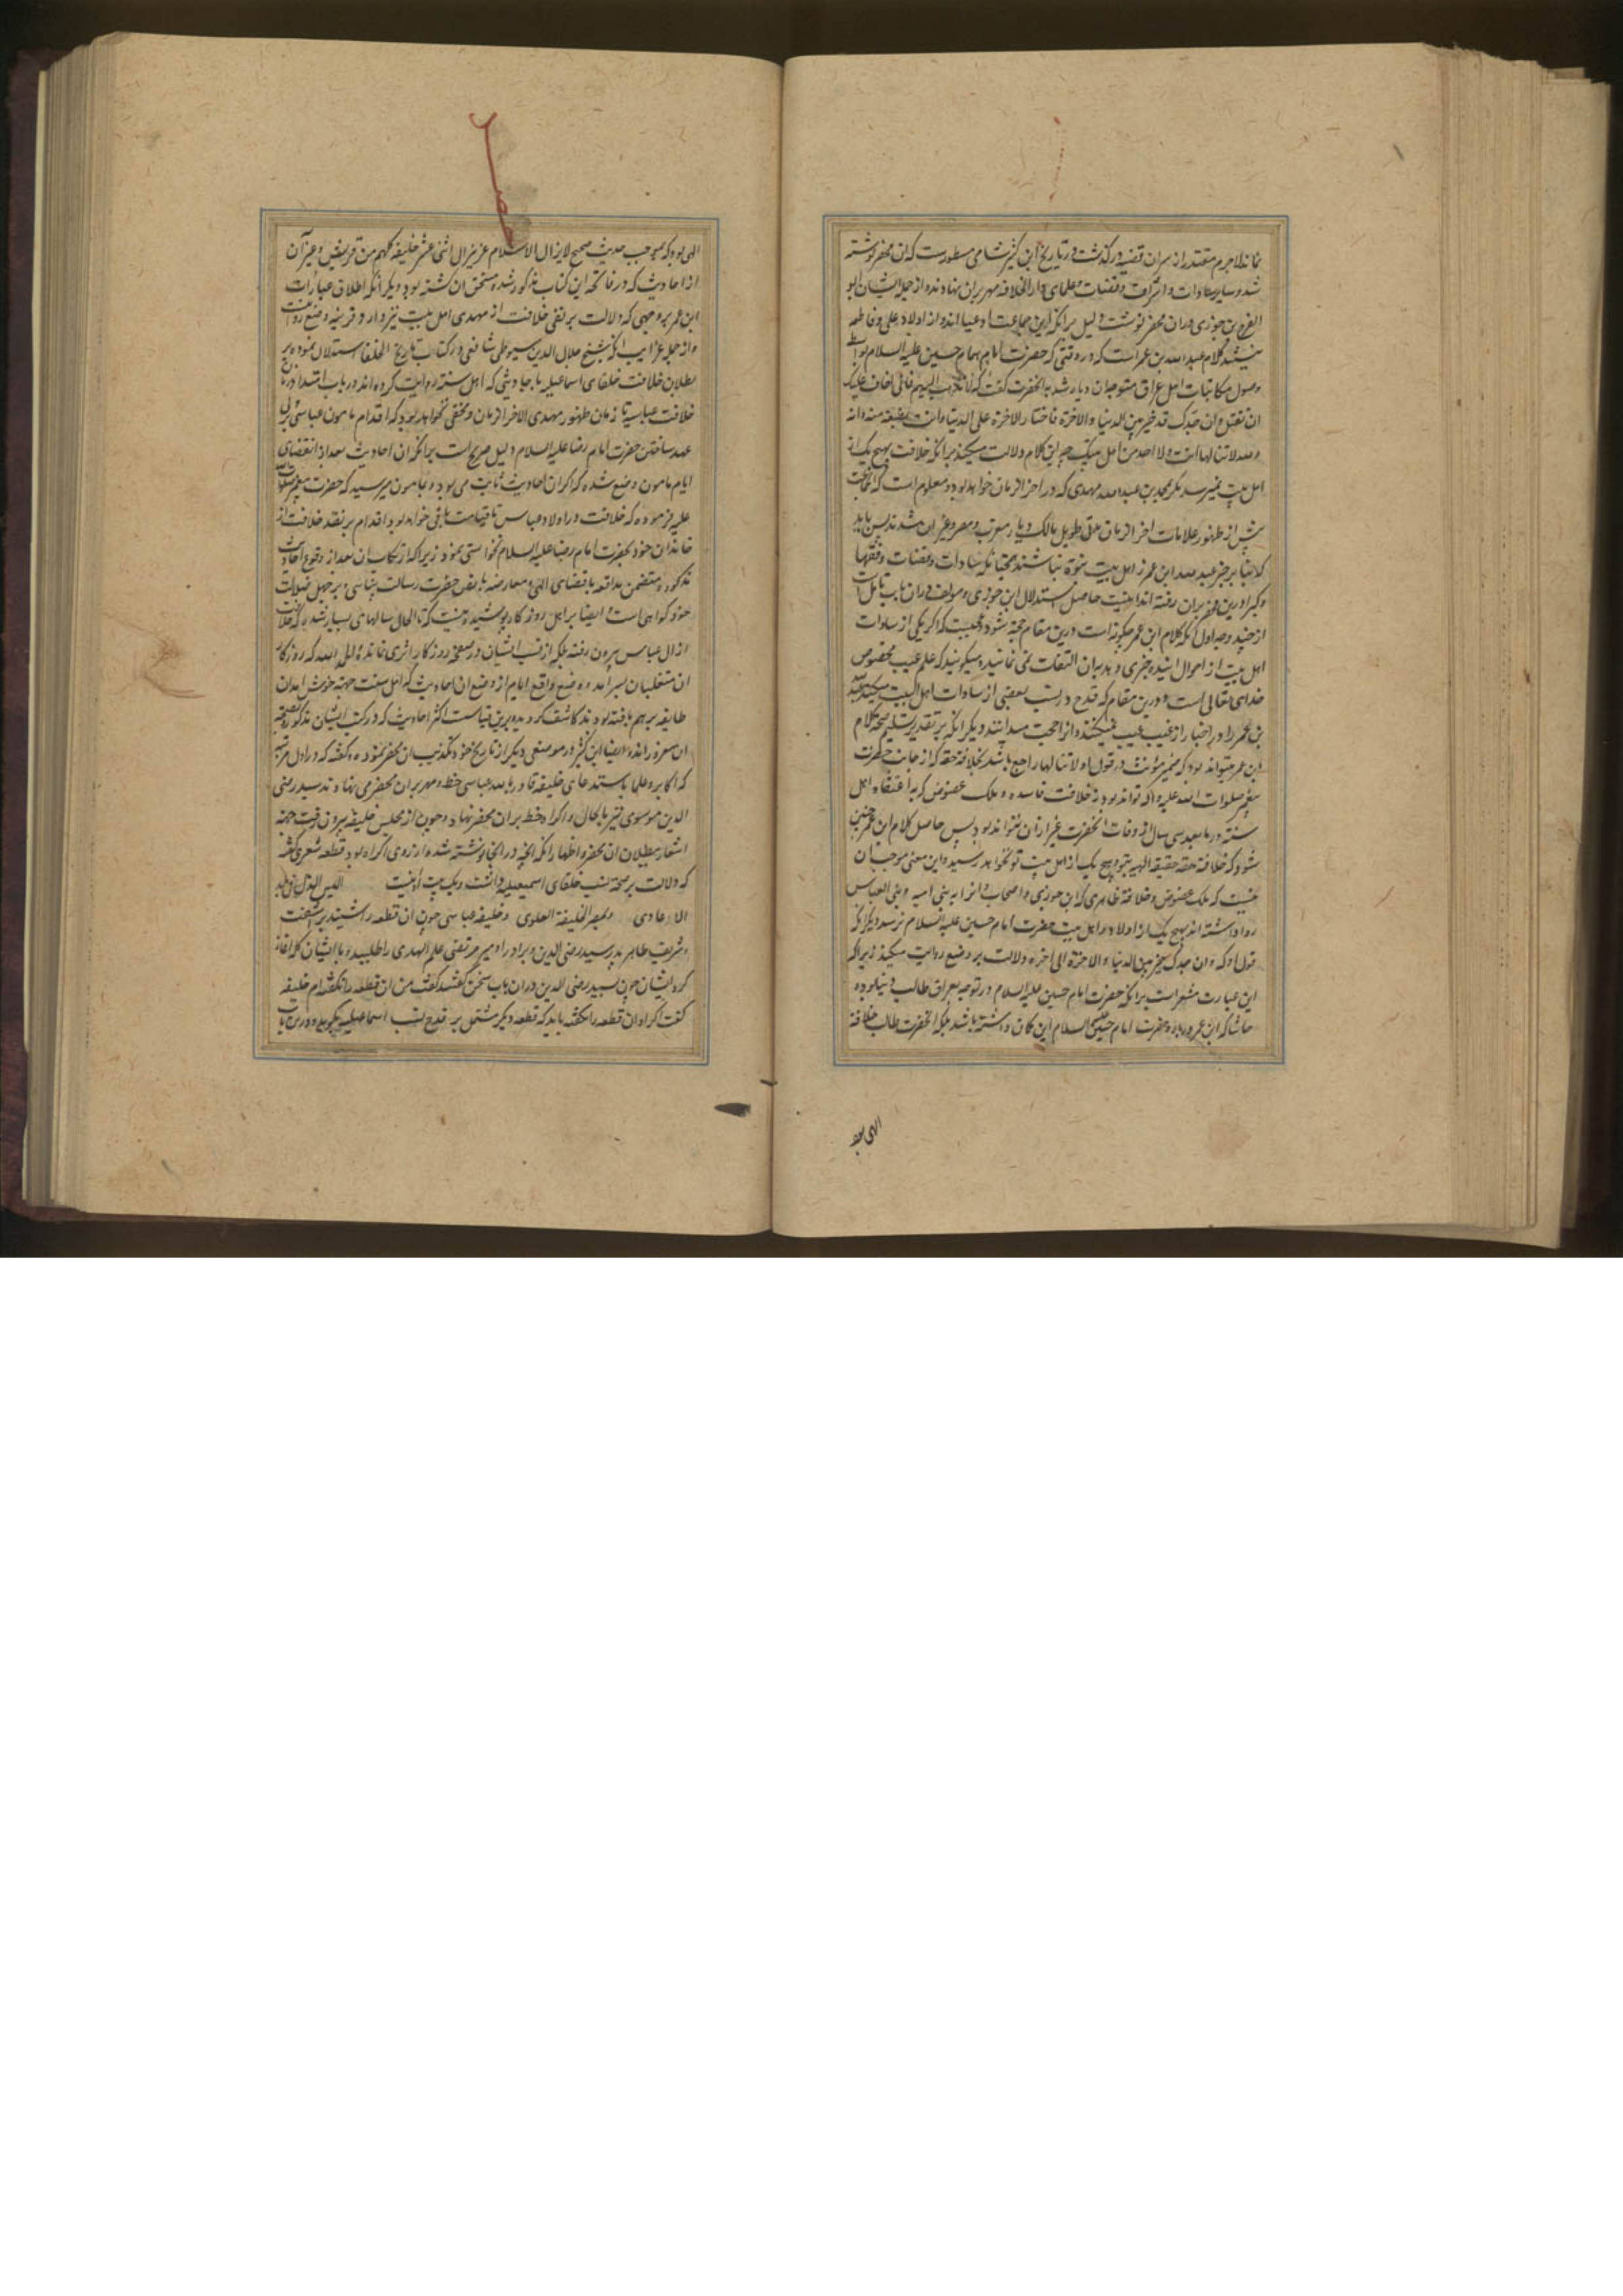 نماند لاجرم مقتدر از سران قضیه درگذشت و در تاریخ ابن کثیر شامی مسطورست که این محضر نوشته
شد و سایر سادات و اشراف و قضات و علمای دار الخلافه مهر بران نهادند و از جمله ایشان ابو
الفرج بن جوزی دران محضر نوشت و لیل برانکه این جماعت ادعیا اند و از اولاد علی و فاطمه
نیستند کلام عبد الله بن عمر است که در وقتی که حضرت امام همام حسین علیه السلام بواسطه
وصول مکاتبات اهل عراق متوجه ان دیار شد به انحضرت گفت که لا تذهب الیهم فانی اخاف علیک
ان تقتل و ان جدک قد خیر بین الدنیا و الاخرة فاختار الاخرة علی الدنیا و انت بضعة منه و انه
و الله لا تنالها انت و لا احد من اهل بیتک چه این کلام دلالت میکند برانکه خلافت بهیچ یک از
اهل بیت نمیرسد مگر بمحمد بن عبد الله مهدی که در اخر الزمان خواهد بود و معلوم است که انجماعت
پیش از ظهور علامات اخر الزمان مدتی طویل مالک دیار مغرب و مصر و غیر ان شدند پس باید
که بنا بر خبر عبد الله ابن عمر از اهل بیت نبوة نباشند همچنانکه سادات و قضات و فقها
و کبرا درین محضر بران رفته اند اینست حاصل استدلال ابن جوزی و مولف دران باب تامل است
از چند وجه اول انکه کلام ابن عمر چگونه است درین مقام حجة شود و عجبست که اگر یکی از سادات
اهل بیت از احوال اینده خبری دهد بران التفات نمی نمایند و میگویند که علم غیب مخصوص
خدای تعالی است و درین مقام که قدح در نسب بعضی از سادات اهل البیت میکنند عبد الله
بن عمر را در اخبار از غیب عیب نمیکنند و انرا حجت میدانند دیگر انکه بر تقدیر تسلیم صحة کلام
ابن عمر میتواند بود که ضمیر مؤنث در قول او لا تنالها راجع باشد بخلافة حقه که از جانب حضرت
پیغمبر صلوات الله علیه و اله تواند بود نه خلافت فاسده و ملک عضوض که به اعتقاد اهل
سنة در ما بعد سی سال از وفات انحضرت غیر ازان نتواند بود پس حاصل کلام ابن عمر چنین
شود که خلافة حقه حقیقه الهیه بتو و بهیچ یک از اهل بیت تو نخواهد رسید و این معنی موجب ان
نیست که ملک عضوض و خلافة ظاهری که ابن جوزی و اصحاب او انرا به بنی امیه و بنی العباس
روا داشته اند بهیچ یک از اولاد و اهل بیت حضرت امام حسین علیه السلام نرسد دیگر انکه
قول او که و ان جدک خیر بین الدنیا و الاخرة الی اخره دلالت بر وضع روایت میکند زیرا که
این عبارت مشعر است برانکه حضرت امام حسین علیه السلام در توجه بعراق طالب دنیا بوده
حاشا که ابن عمر درباره حضرت امام حسین علیه السلام این گمان داشته باشد بلکه انحضرت طالب خلافة
الهی بود
الهی بود که بموجب حدیث صحیح لا یزال الاسلام عزیزا الی اثنی عشر خلیفه کلهم من قریش و غیر آن
از احادیث که در فاتحه این کتاب مذکور شده مستحق ان گشته بود و دیگر انکه اطلاق عبارات
ابن عمر بر وجهی که دلالت بر نفی خلافت از مهدی اهل بیت نیز دارد قرینه وضع روایت است
و از جمله غرایب انکه شیخ جلال الدین سیوطی شافعی در کتاب تاریخ الخلفا استدلال نموده بر
بطلان خلافت خلفای اسماعیلیه باحادیثی که اهل سنة روایت کرده اند در باب امتداد زمان
خلافت عباسیه تا زمان ظهور مهدی الاخر الزمان و مخفی نخواهد بود که اقدام مامون عباسی بر ولی
عهد ساختن حضرت امام رضا علیه السلام دلیل صریح است برانکه ان احادیث بعد از انقضای
ایام مامون وضع شده که اگر ان احادیث ثابت می بود و بمامون میرسید که حضرت پیغمبر صلوات الله
علیه فرموده که خلافت در اولاد عباس تا قیامت باقی خواهد بود اقدام بر نقد خلافت از
خاندان خود بحضرت امام رضا علیه السلام نخواستی نمود زیرا که ارتکاب ان بعد از وقوع احادیث
مذکوره متضمن مدافعه با قضای الهی و معارضه با نص حضرت رسالت پناهی و بر جهل و ضلالت
خود گواهی است و ایضا بر اهل روزگار پوشیده نیست که تا الحال سالهای بسیار شد که خلافت
از ال عباس بیرون رفته بلکه از نسب ایشان در صفحه روزگار اثری نمانده و لله الحمد که روزگار
ان متغلبان بسر امد و وضع واقع ایام از وضع ان احادیث که اهل سنت جهة خوش امدان
طایفه بر هم بافته بودند کاشف کردید و برین قیاست اکثر احادیث که در کتب ایشان مذکور و بصحة
ان مغرور اند و ایضا ابن کثیر در موضعی دیگر از تاریخ خود تکذیب ان محضر نموده و گفته که در اول مرتبه
که اکابر و علما باستدعای خلیفه قادر بالله عباسی خط و مهر بران محضر می نهادند سید رضی
الدین موسوی نیز بالحال و اکراه خط بران محضر نهاد و چون از مجلس خلیفه بیرون رفت جهة
اشعار ببطلان ان محضر و اظهار انکه انچه در انجا نوشته شده از روی اکراه بود قطعه شعری گفته
که دلالت بر صحة نسب خلفای اسمعیلیه داشت و یک بیت اینست البس الذل فی بلاد
الاعادی و بمصر الخلیفة العلوی و خلیفه عباسی چون ان قطعه را شنید بر اشفت
و شریف طاهر پدر سید رضی الدین و برادر او میر مرتضی علم الهدی را طلبید و با ایشان گله اغاز
کرد ایشان چون بسید رضی الدین دران باب سخن گفتند گفت من ان قطعه را نگفته ام خلیفه
گفت اگر او ان قطعه را نگفته باید که قطعه دیگر مشتمل بر قدح نسب اسماعیلیه بگوید و درین باب